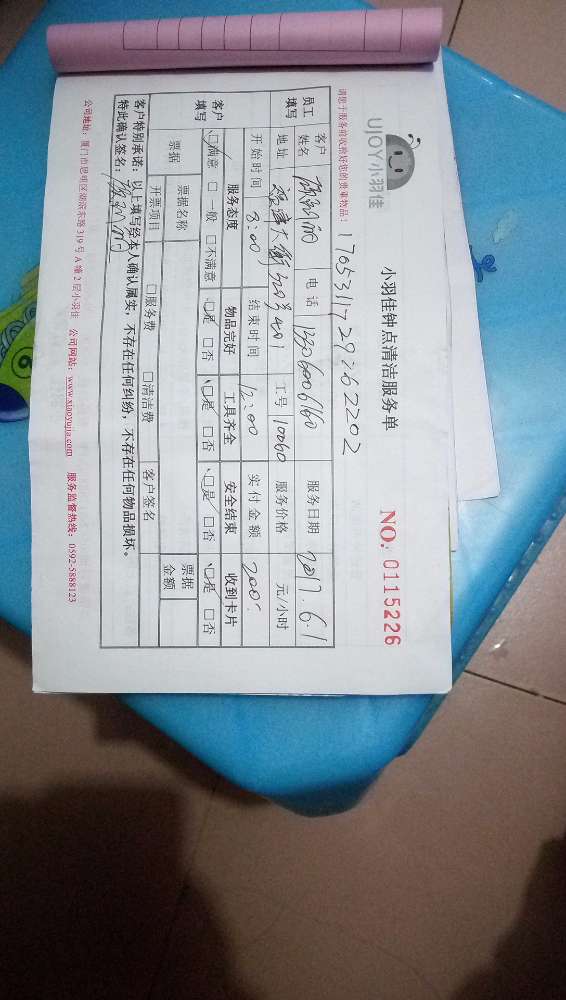 UJOY小羽佳
小羽佳钟点清洁服务单
NO. 0115226
请您于服务前收拾好您的贵重物品!
1705311729262202
员工填写 客户姓名 电话 服务日期 2017.6.1
地址 320号401 工号 10060 服务价格 元/小时
开始时间 8:00 结束时间 12:00 实付金额 200
客户填写 服务态度 物品完好 工具齐全 安全结束 收到卡片
□满意 □一般 □不满意 □是 □否 □是 □否 □是 □否 □是 □否
票据 票据名称 票据金额
开票项目 □服务费 □清洁费 客户签名
客户特别承诺:以上填写经本人确认属实,不存在任何纠纷,不存在任何物品损坏。
特此确认签名:
公司地址:厦门市思明区湖滨东路319号A幢2层小羽佳 公司网站:www.xiaoyujia.com 服务监督热线:0592-5888123